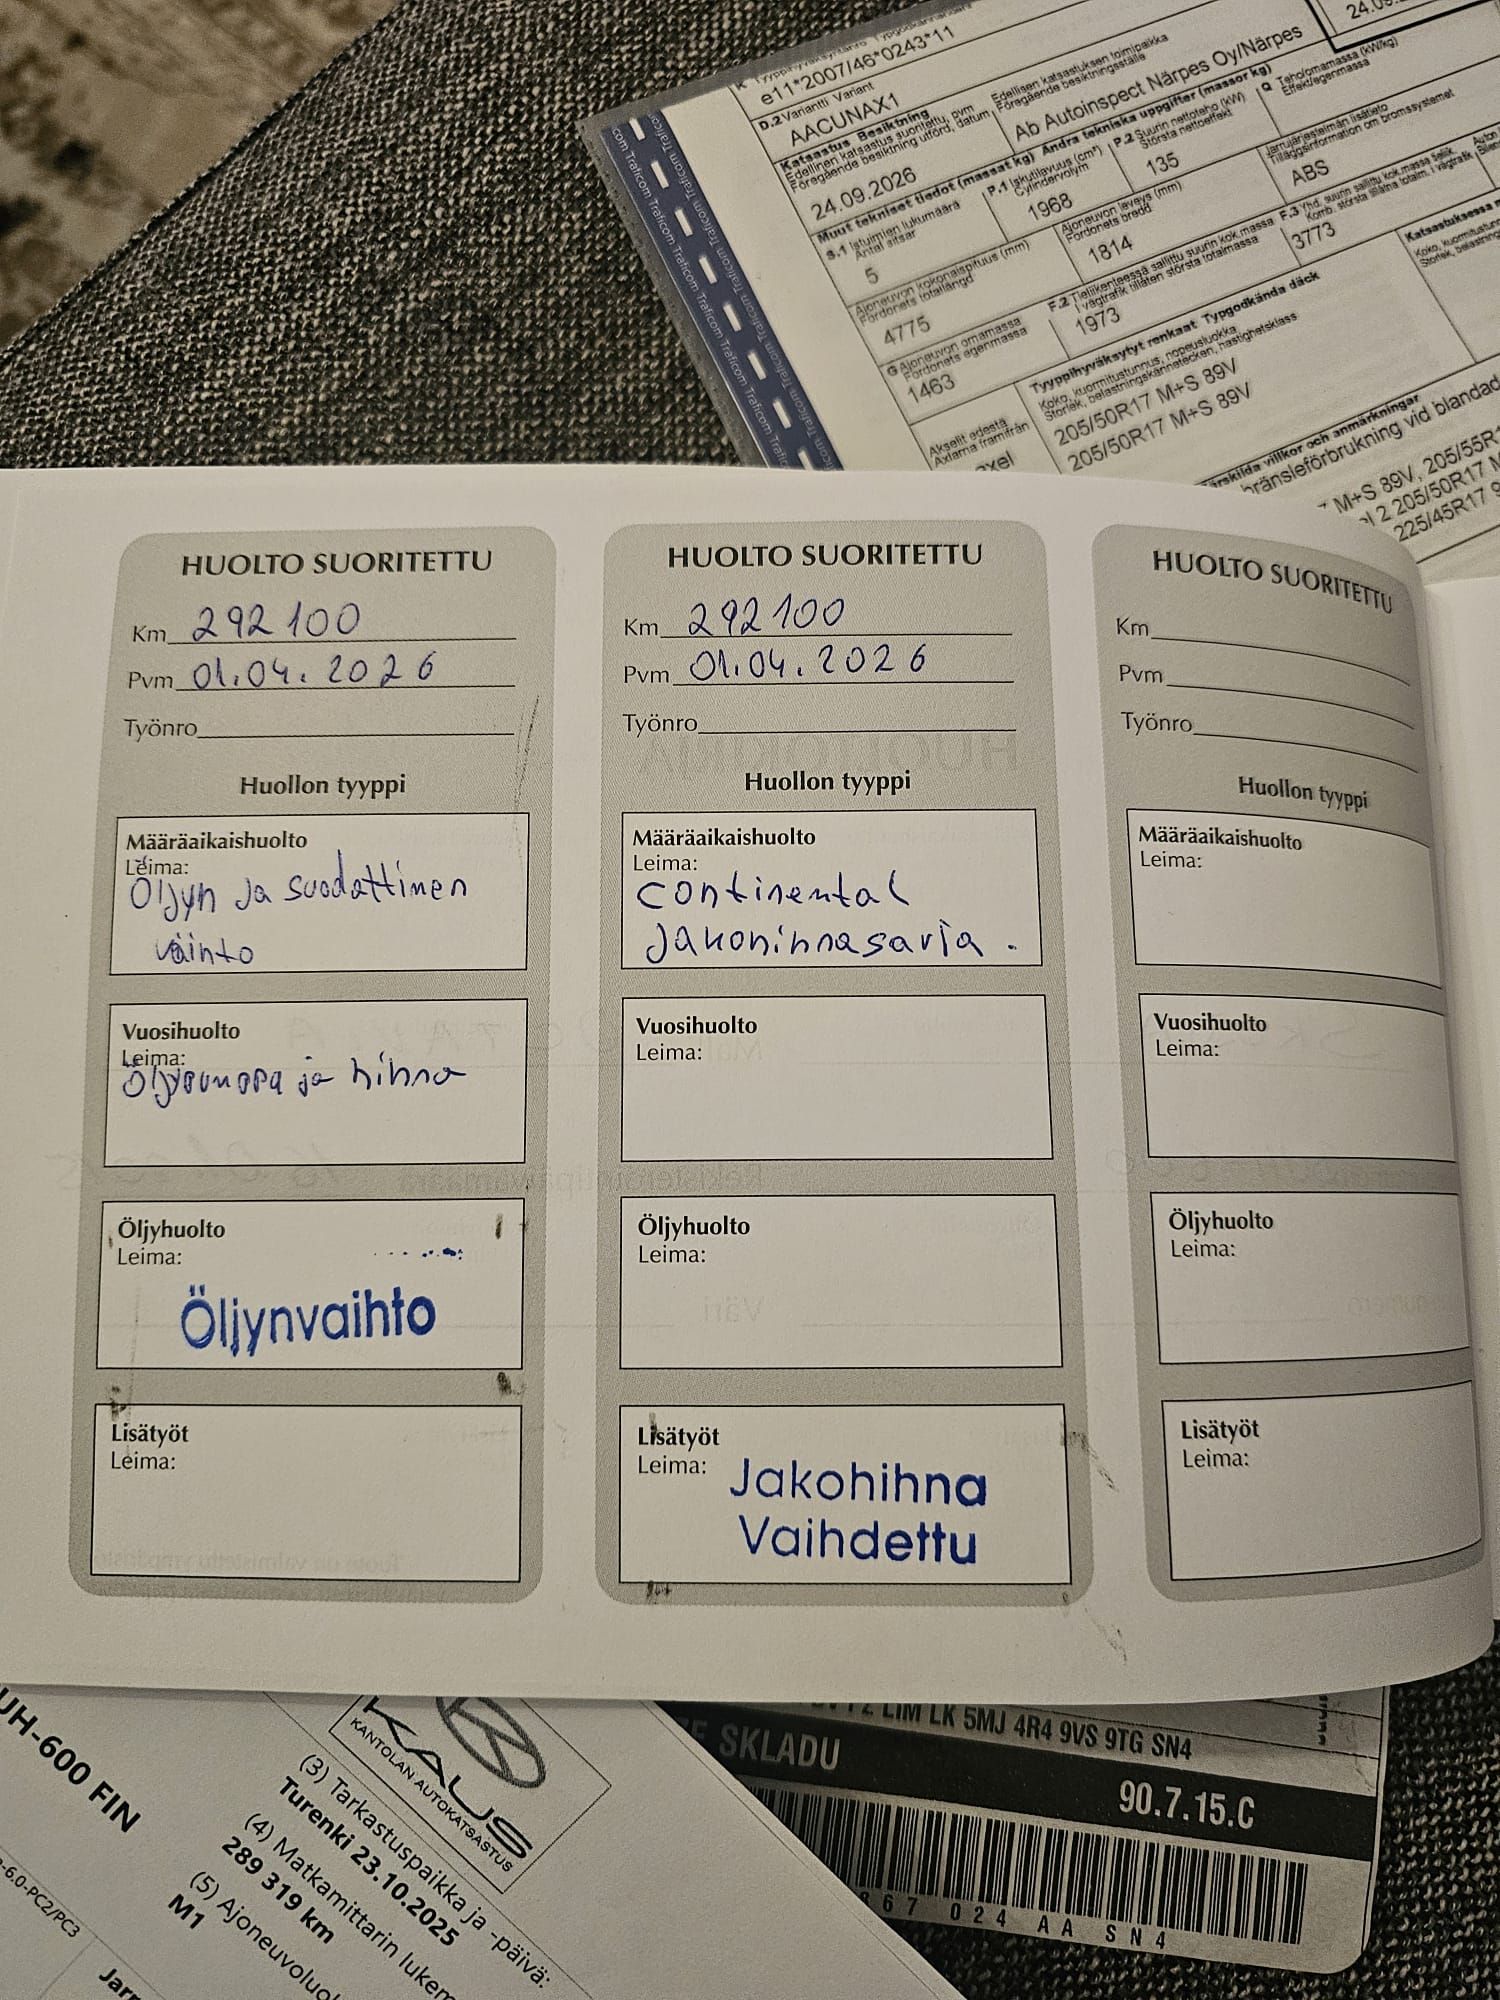 e11*2007/46*0243*11
D.2 Variantti Variant
AACUNAX1
Katsastus Besiktning
Edellinen katsastus suoritettu, pvm
Föregående besiktning utförd, datum
24.09.2026
Edellisen katsastuksen toimipaikka
Föregående besiktningsställe
Ab Autoinspect Närpes Oy/Närpes
Muut tekniset tiedot (massat kg) Andra tekniska uppgifter (massor kg)
S.1 Istuimien lukumäärä
Antal sitsar
5
P.1 Iskutilavuus (cm³)
Cylindervolym
1968
P.2 Suurin nettoteho (kW)
Största nettoeffekt
135
Q Teho/omamassa (kW/kg)
Effekt/egenmassa
Ajoneuvon kokonaispituus (mm)
Fordonets totallängd
4775
Ajoneuvon leveys (mm)
Fordonets bredd
1814
Jarrujärjestelmän lisätieto
Tilläggsinformation om bromssystemet
ABS
G Ajoneuvon omamassa
Fordonets egenmassa
1463
F.2 Tieliikenteessä sallittu suurin kok.massa
I vägtrafik tillåten största totalmassa
1973
3773
Akselit edestä
Axlarna framifrån
Tyyppihyväksytyt renkaat Typgodkända däck
Koko, kuormitustunnus, nopeusluokka
Storlek, belastningskännetecken, hastighetsklass
205/50R17 M+S 89V
205/50R17 M+S 89V
HUOLTO SUORITETTU
Km 292 100
Pvm 01.04.2026
Työnro
Huollon tyyppi
Määräaikaishuolto
Leima:
Öljyn ja suodattimen
väihto
Vuosihuolto
Leima:
Öljypumppa ja hihna
Öljyhuolto
Leima:
Öljynvaihto
Lisätyöt
Leima:
HUOLTO SUORITETTU
Km 292100
Pvm 01.04.2026
Työnro
Huollon tyyppi
Määräaikaishuolto
Leima:
Continental
Jakohihnasarja.
Vuosihuolto
Leima:
Öljyhuolto
Leima:
Lisätyöt
Leima:
Jakohihna
Vaihdettu
HUOLTO SUORITETTU
Km
Pvm
Työnro
Huollon tyyppi
Määräaikaishuolto
Leima:
Vuosihuolto
Leima:
Öljyhuolto
Leima:
Lisätyöt
Leima:
UH-600 FIN
KLAUS
KANTOLAN AUTOKATSASTUS
(3) Tarkastuspaikka ja -päivä:
Turenki 23.10.2025
(4) Matkamittarin lukem
289 319 km
(5) Ajoneuvoluo
M1
LK 5MJ 4R4 9VS 9TG SN4
SKLADU
90.7.15.C
67 024 AA SN4